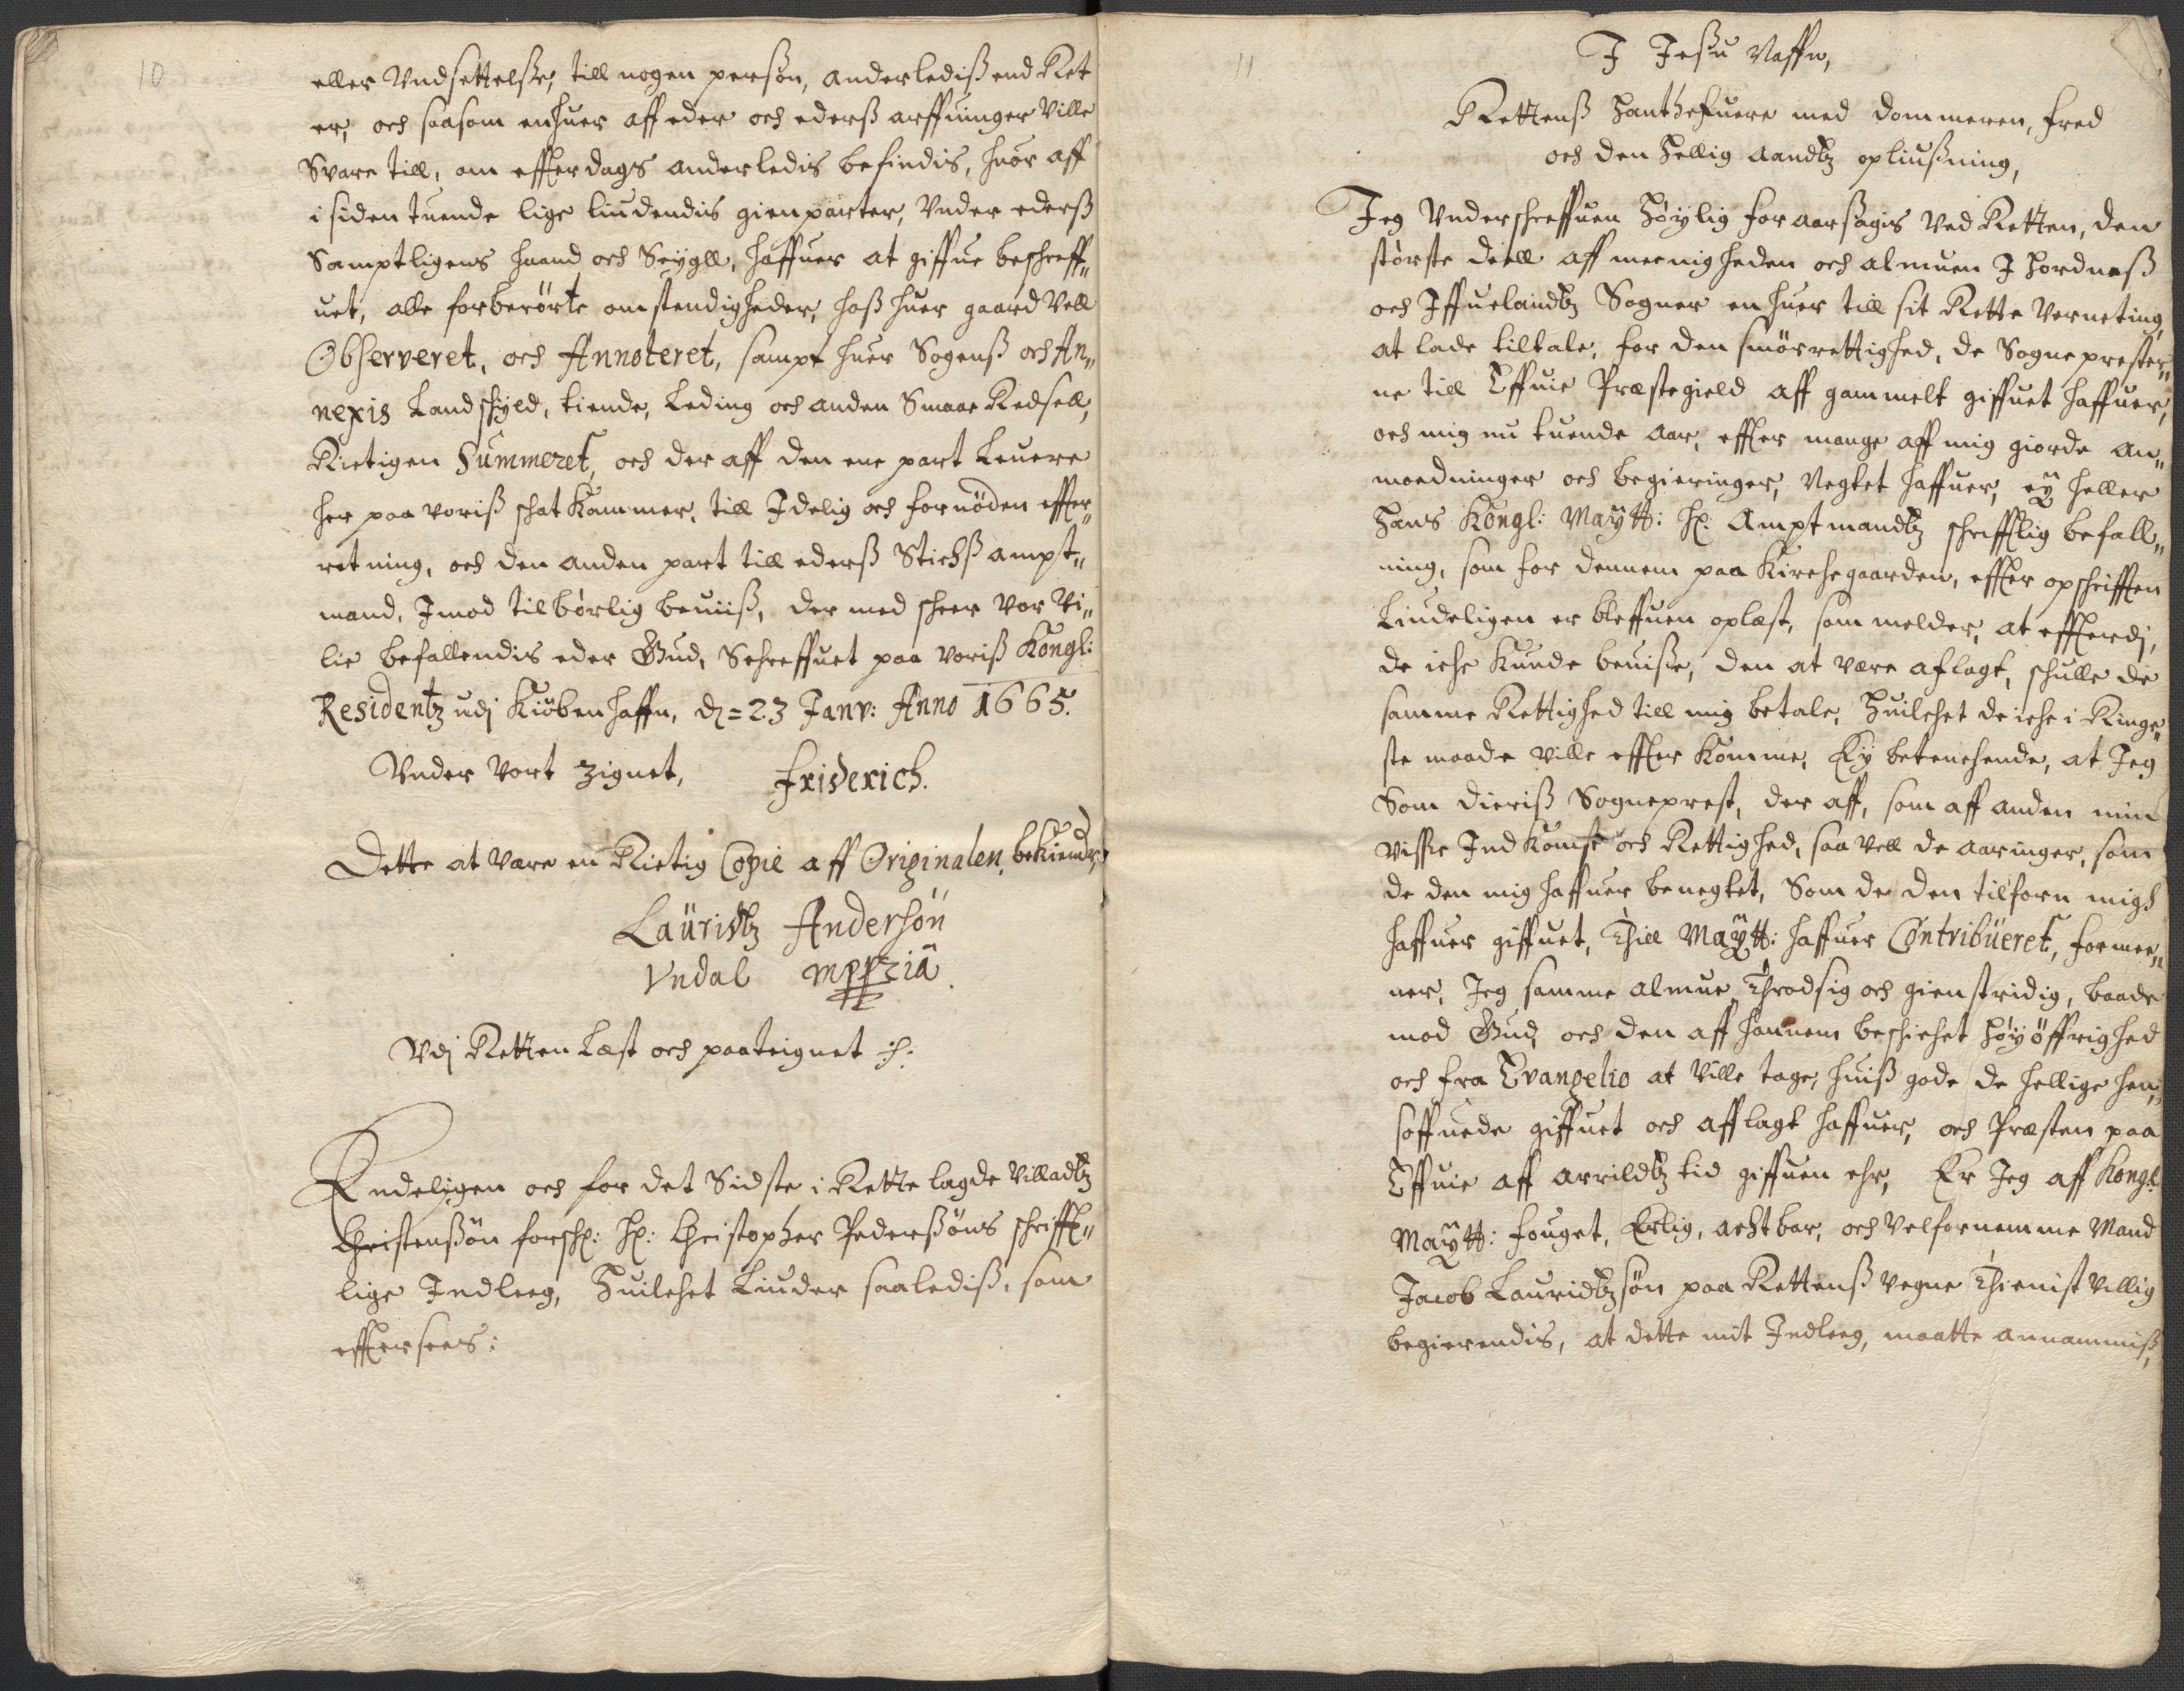 10
eller Vndsettelße, till nogen person, anderledis end Ret
er, och saasom enhuer aff eder och ederß arffuinger Ville
Svare till, om effterdags anderledis befindis, huor aff
i siden tuende lige liudendis gienparter, Vnder ederß
Samptligens haand och Seygll, haffuer at giffue beschreff„
uet, alle forberörte omstendigheder, hoß huer gaard Vell
Observeret, och Annoteret, sampt huer Sogenß och An„
nexis Landschyld, tiende, Leding och anden Smaae Redsell,
Rictigen Summeret, och der aff den ene part Leuere
her paa voriß schatKammer, till Idelig och fornöden effter„
retning, och den anden part till ederß Stichtß ampt„
mand, Imod tilbörlig beuiiß, der med scheer Vor Vi„
lie befallendis eder Gud, Schreffuet paa voriß Kongl:
Residentz udj Kiöbenhaffn, dj = 23 Janv: Anno 1665.
Vnder Vort Zignet, Friderich.
Dette at Vare en Rictig Copie aff Originalen, bekiender
Lauridtz Andersön
Vndal mppria
Vdj Retten Læst och paateignet
Endeligen och for det Sidste i Rette lagde Villadtz
Christenßön forschr: Hr: Christopher Pederßöns schrifft„
lige Indleeg, Huilchet Liuder saalediß, som
effterfees:
11
I Jeßu Naffn,
Rettenß Hanthefuere med dommeren, fred
och den Hellig Aandtz opliußning,
Jeg Vnderschreffuen Höylig foraarsagis Ved Retten, den
störste deell aff meenigheden och almuen I Hordneß
och Iffuelandtz Sogner enhuer till sit Rette Verneting,
at lade tiltale, for den smörrettighed, de Sogneprester„
ne till Effuie Præstegield aff gammelt giffuet haffuer,
och mig nu tuende aar, effter mange aff mig giorde an„
moedninger och begieringer, Negtet haffuer, eÿ heller
Hans Kongl: Maÿtt: Hr: Amptmandtz schrifftlig befall„
ning, som for dennem paa Kirchegaarden, effter opschrifften
Liudeligen er bleffuen oplæst, som melder, at effterdj,
de iche Kunde beuiße, den at være aflagt, schulle de
samme Rettighed till mig betale, Huilchet de iche i Ringe„
ste maade ville effterKomme, Ey betenchende, at Jeg
Som dieriß Sogneprest, der aff, som aff anden min
visße IndKomst och Rettighed, saa vell de aaringer, som
de den mig haffuer benegtet, Som de den tilforn migh
haffuer giffuet, Thill Maÿtt: haffuer Contribueret, formee„
ner, Jeg samme almue Throdsig och gienstridig, baade
mod Gud, och den aff hannem beschichet Höyöffrighed
och fra Evangelio at Ville tage, huiß gode de hellige hen„
soffuede giffuet och afflagt haffuer, och Præsten paa
Effuie aff arrildtz tid giffuen ehr, Er Jeg aff Kongl:
Maÿtt: fouget, Erlig, achtbar, och Velfornemme Mand
Jacob Lauridtzsön paa Rettenß vegne Thienist Villig
begierendis, at dette mit Indleeg, maatte annammiß,